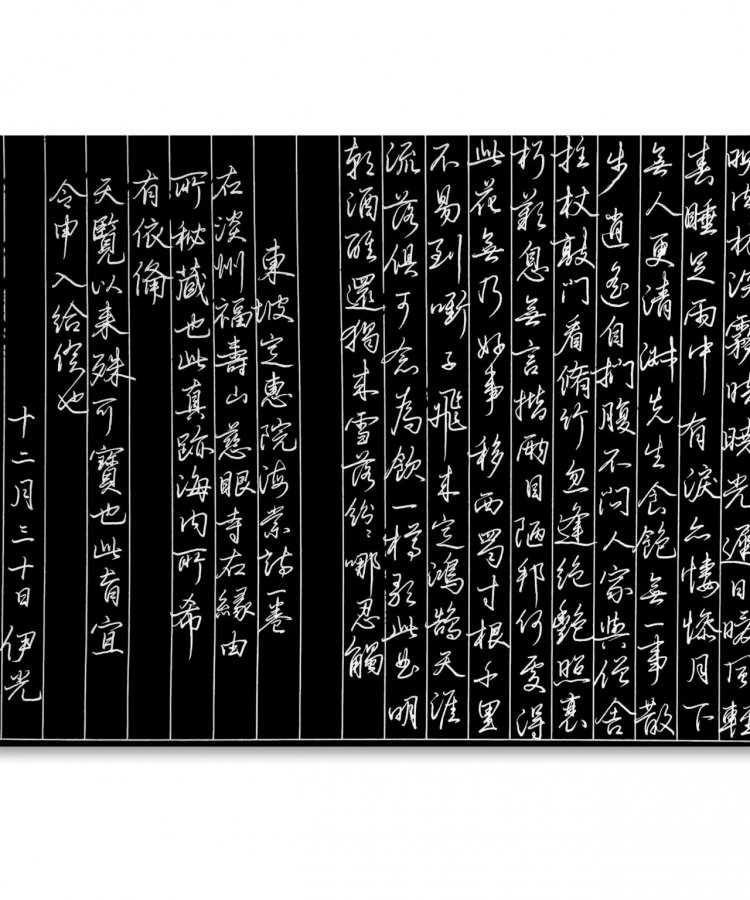 映肉林深霧暗曉光遲日暖風輕
春睡足雨中有淚亦悽愴月下
無人更清淑先生食飽無一事散
步逍遙自捫腹不問人家與僧舍
拄杖敲門看脩竹忽逢絶艷照衰
朽歎息無言揩病目陋邦何處得
此花無乃好事移西蜀寸根千里
不易到銜子飛来定鴻鵠天涯
流落俱可念為飲一樽歌此曲明
朝酒醒還獨来雪落紛〻哪忍觸
東坡定惠院海棠詩一卷
右淡州福壽山慈眼寺右緣由
所秘蔵也此真跡海内所希
有依備
天覽以来殊可寶也此旨宜
令申入給候也
十二月三十日 伊光